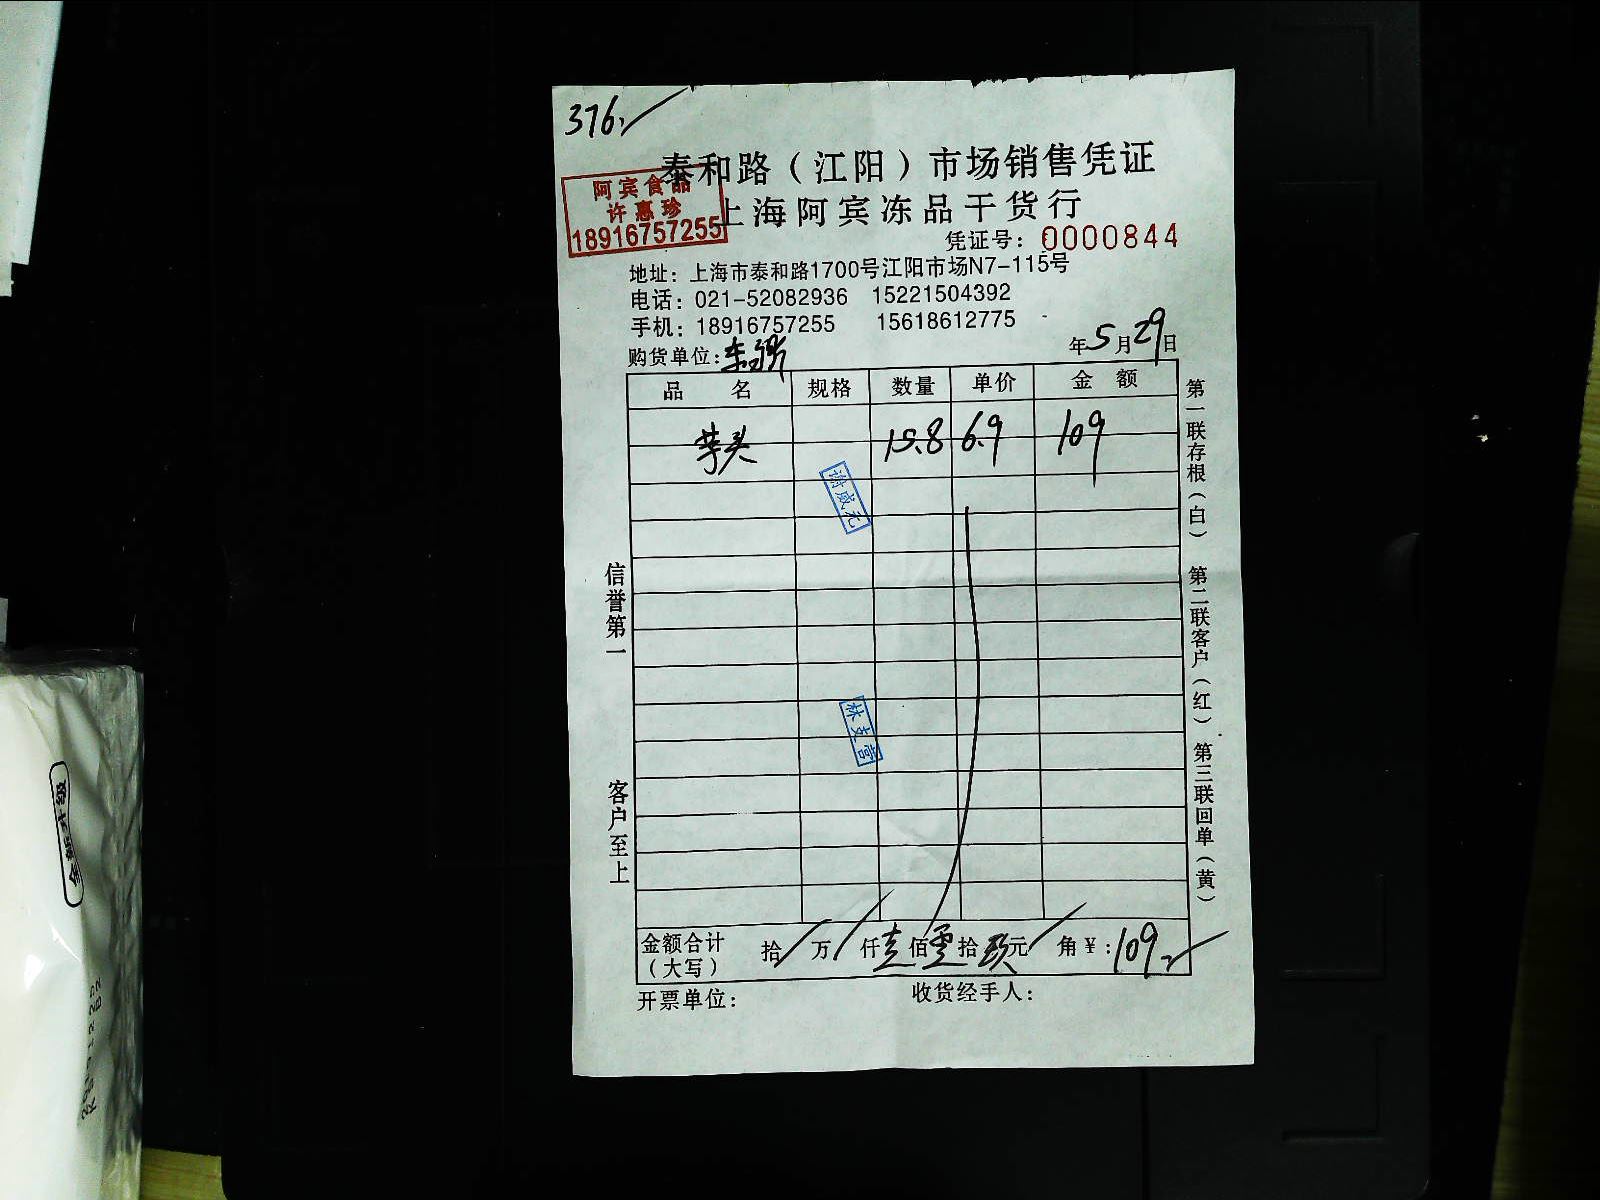 376.
泰和路（江阳）市场销售凭证
上海阿宾冻品干货行
阿宾食品
许惠珍
18916757255
凭证号：0000844
地址：上海市泰和路1700号江阳市场N7-115号
电话：021-52082936 15221504392
手机：18916757255 15618612775
购货单位：
年5月29日
品名 规格 数量 单价 金额
芋头 15.8 6.9 109
谢威元
林支营
信誉第一
客户至上
第一联存根（白） 第二联客户（红） 第三联回单（黄）
金额合计（大写） 拾/万/仟壹佰零拾玖元/角￥：109.
开票单位： 收货经手人：
全新升级